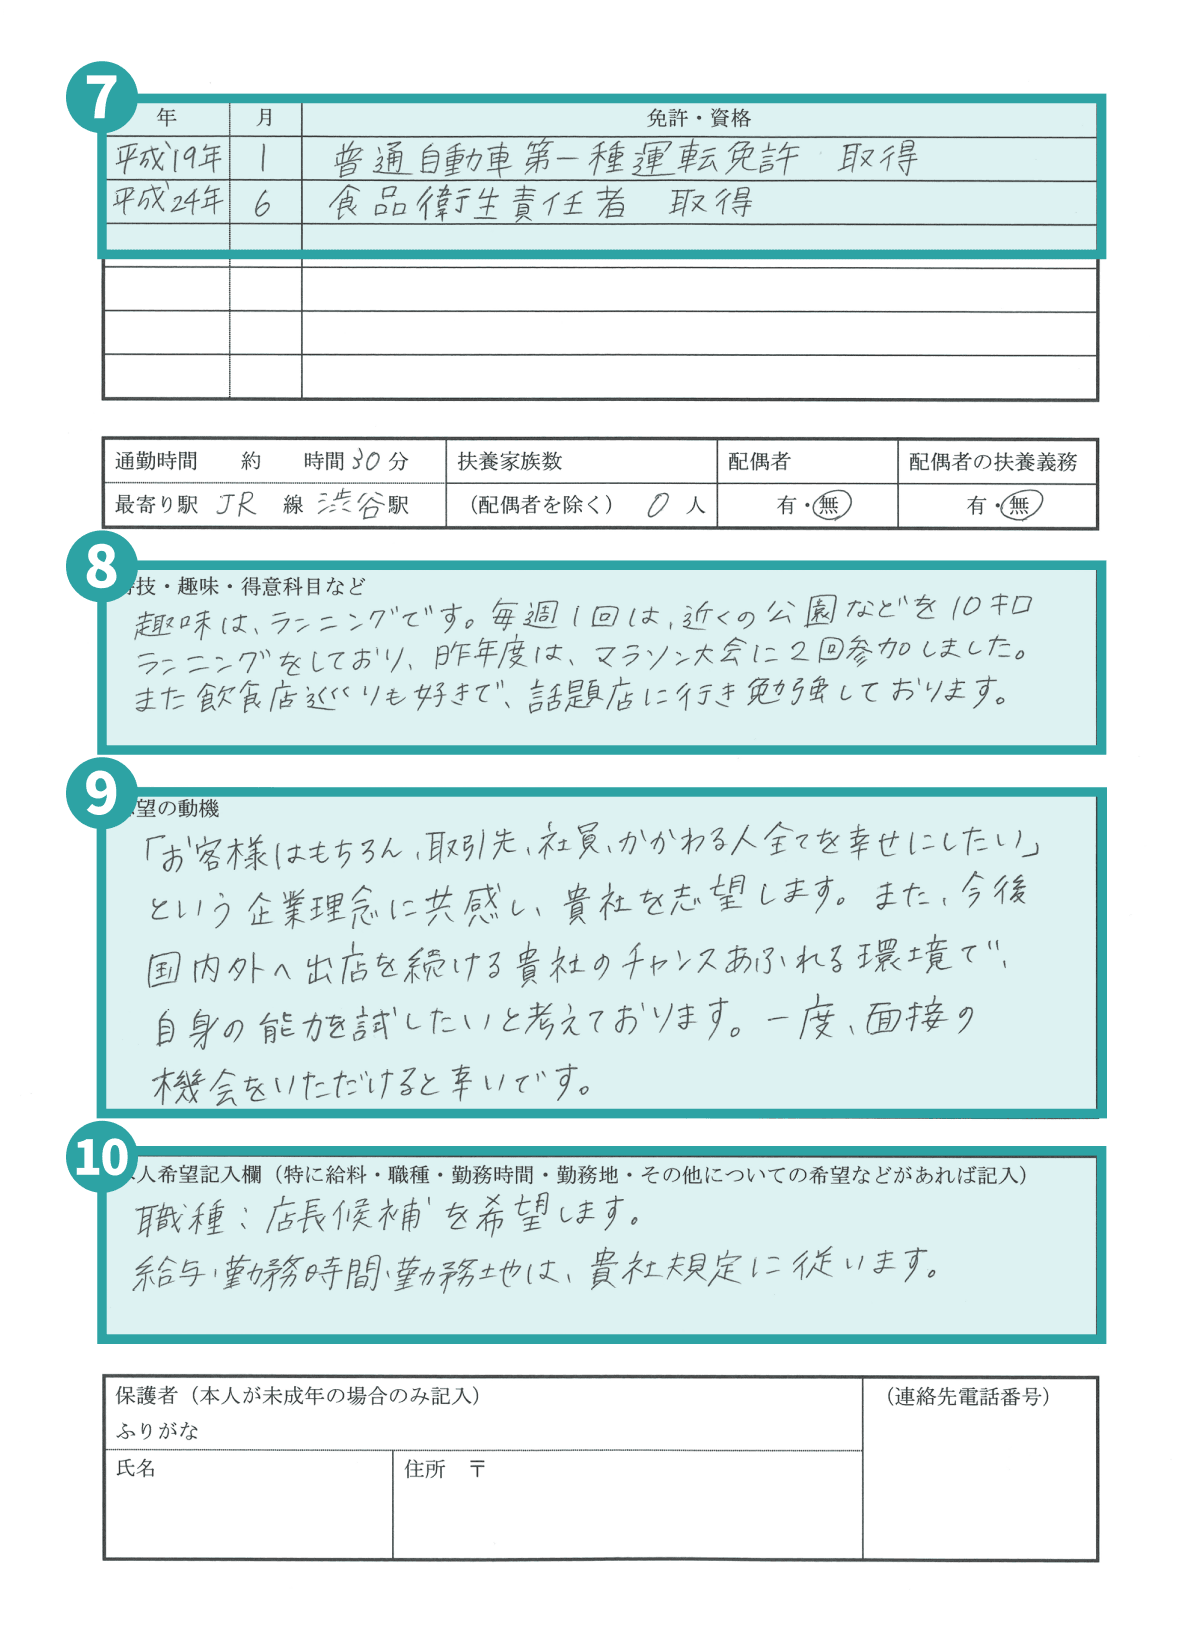 7
年 月 免許・資格
平成19年 1 普通自動車第一種運転免許 取得
平成24年 6 食品衛生責任者 取得
通勤時間 約 時間30分 扶養家族数 配偶者 配偶者の扶養義務
最寄り駅 JR 線 渋谷駅 （配偶者を除く） 0 人 有・無 有・無
8
技・趣味・得意科目など
趣味は、ランニングです。毎週1回は、近くの公園などを10キロ
ランニングをしており、昨年度は、マラソン大会に2回参加しました。
また飲食店巡りも好きで、話題店に行き勉強しております。
9
望の動機
「お客様はもちろん、取引先、社員、かかわる人全てを幸せにしたい」
という企業理念に共感し、貴社を志望します。また、今後
国内外へ出店を続ける貴社のチャンスあふれる環境で、
自身の能力を試したいと考えております。一度、面接の
機会をいただけると幸いです。
10
人希望記入欄（特に給料・職種・勤務時間・勤務地・その他についての希望などがあれば記入）
職種：店長候補を希望します。
給与・勤務時間・勤務地は、貴社規定に従います。
保護者（本人が未成年の場合のみ記入） （連絡先電話番号）
ふりがな
氏名 住所 〒